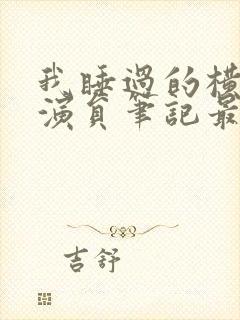 我睡過的橫
演員筆記最
吉舒